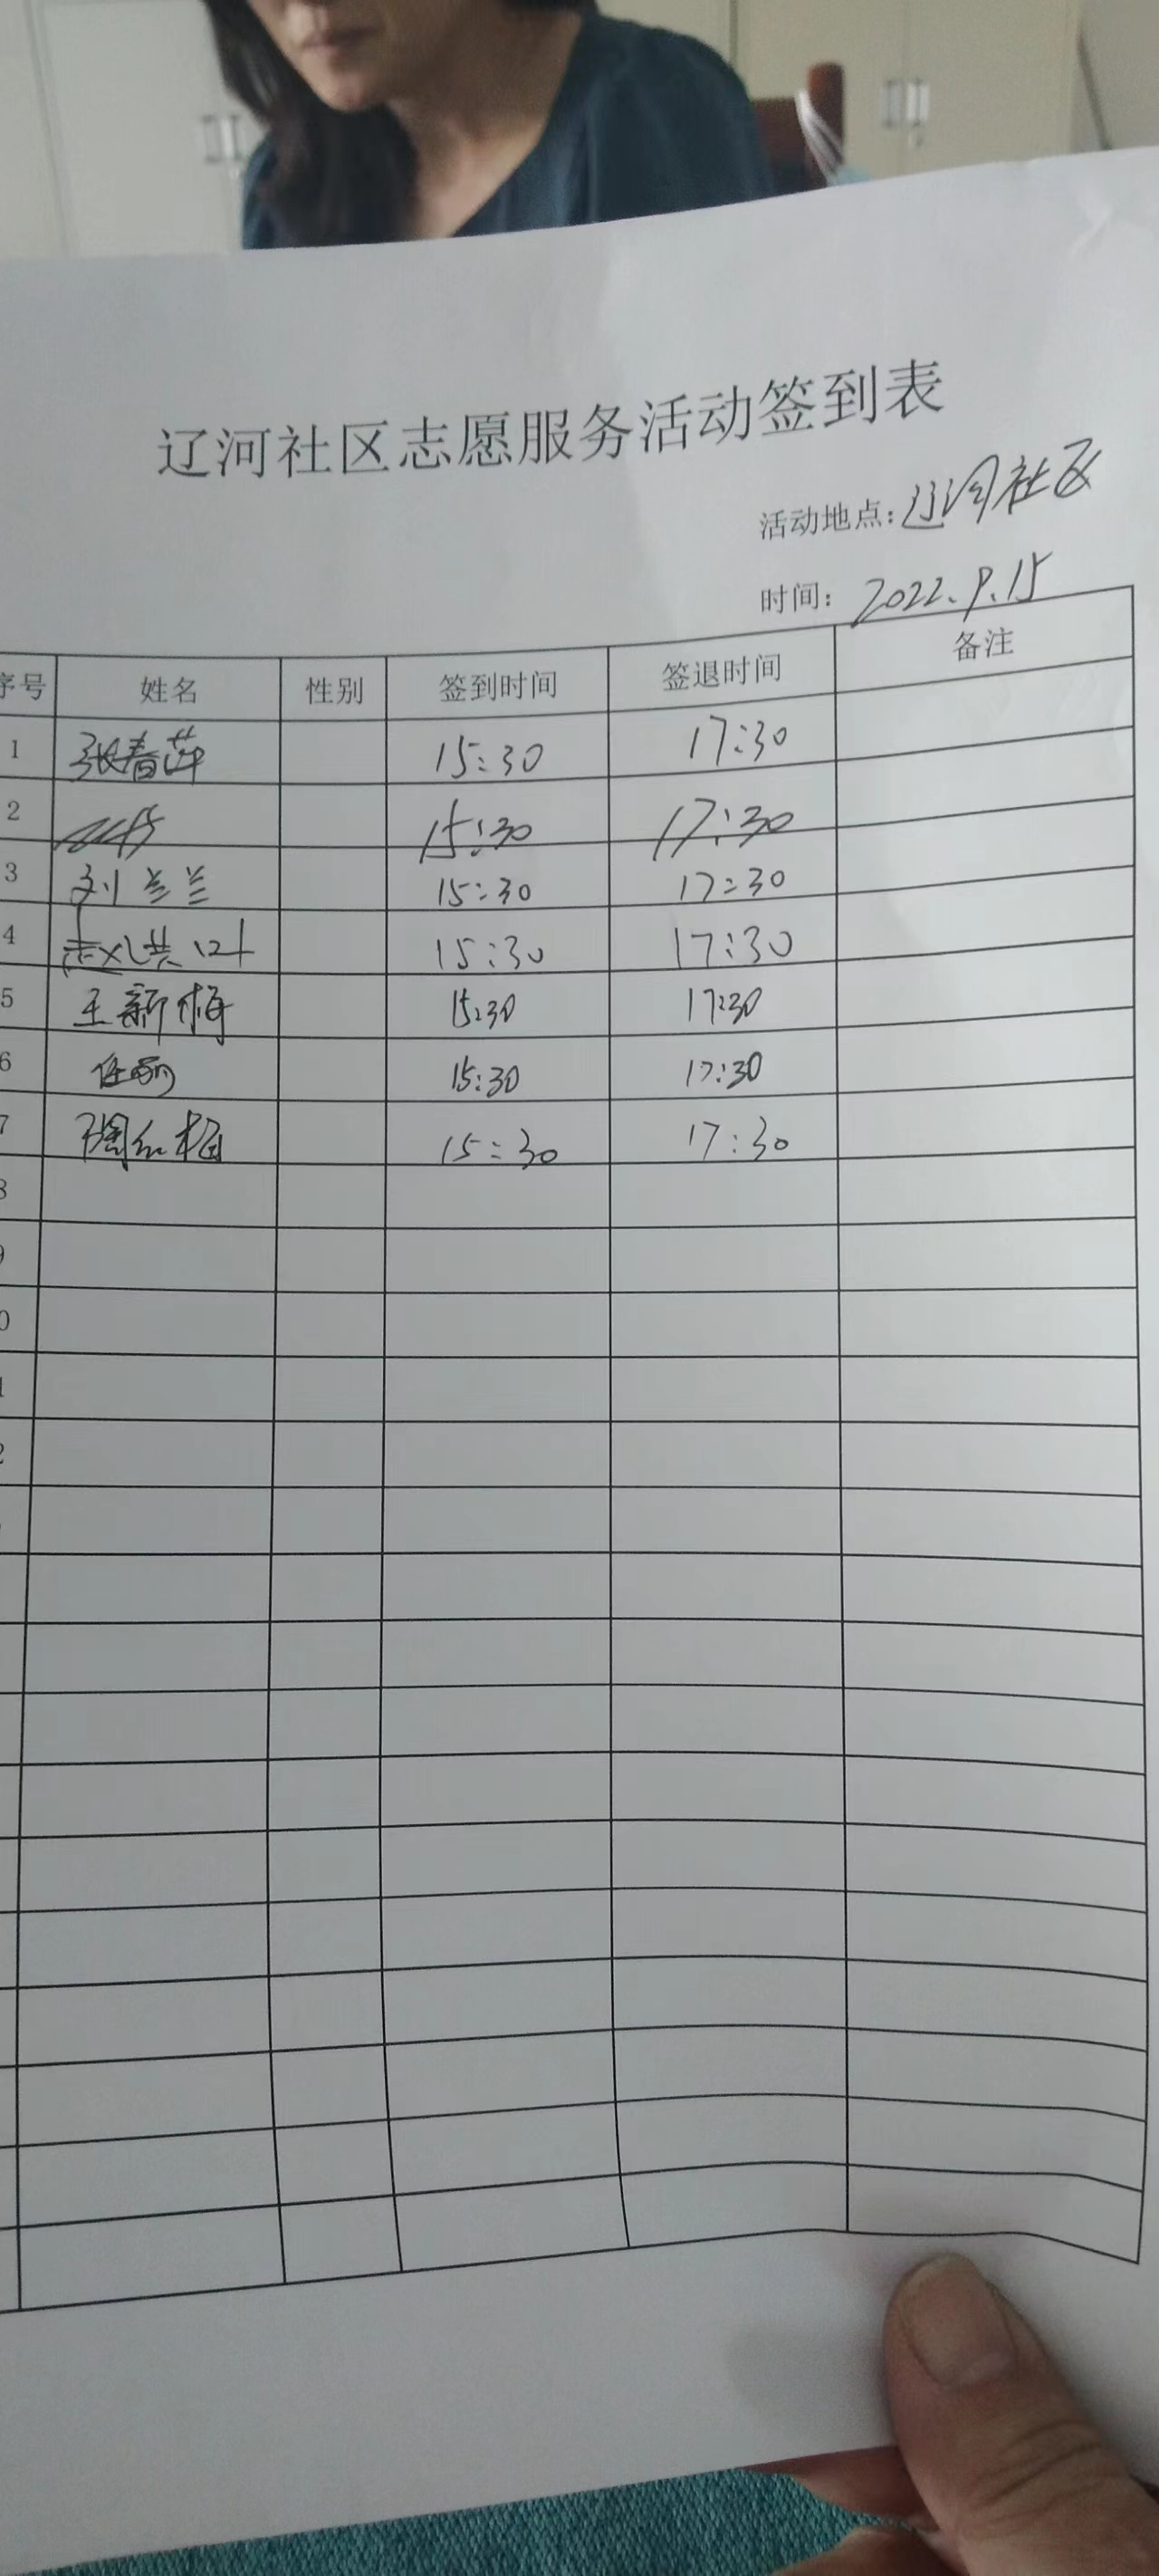 辽河社区志愿服务活动签到表
活动地点：辽河社区
时间：2022.9.15
序号 姓名 性别 签到时间 签退时间 备注
1 张春萍 15:30 17:30
2 15:30 17:30
3 刘兰兰 15:30 17:30
4 赵洪叶 15:30 17:30
5 王新梅 15:30 17:30
6 任丽 15:30 17:30
7 陶红梅 15:30 17:30
8
9
0
1
2